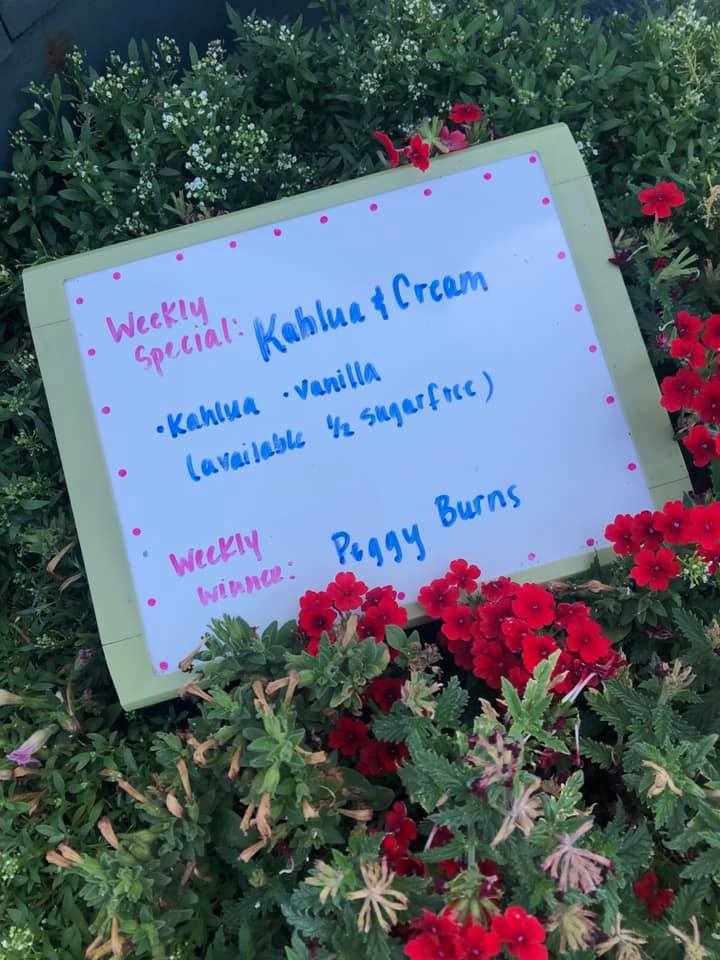 Weekly Special: Kahlua & Cream
• Kahlua • vanilla
(available 1/2 sugarfree)
Weekly winner: Peggy Burns